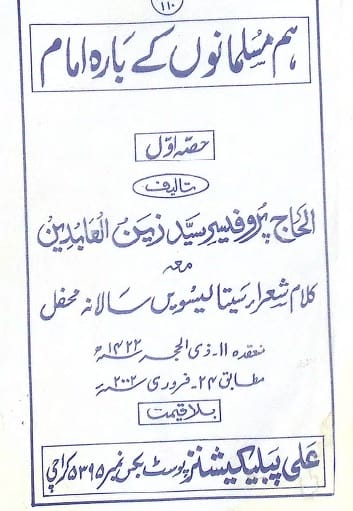 ۱۱۰
ہم مسلمانوں کے بارہ امام
حصہ اوّل
تالیف
الحاج پروفیسر سیّد زین العابدین
معہ
کلام شعراء سینتالیسویں سالانہ محفل
منعقدہ ۱۱۔ ذی الحجہ ۱۴۲۲ھ
مطابق ۲۴۔ فروری ۲۰۰۲ء
بلا قیمت
علی پبلیکیشنز پوسٹ بکس نمبر ۵۳۹۵ کراچی